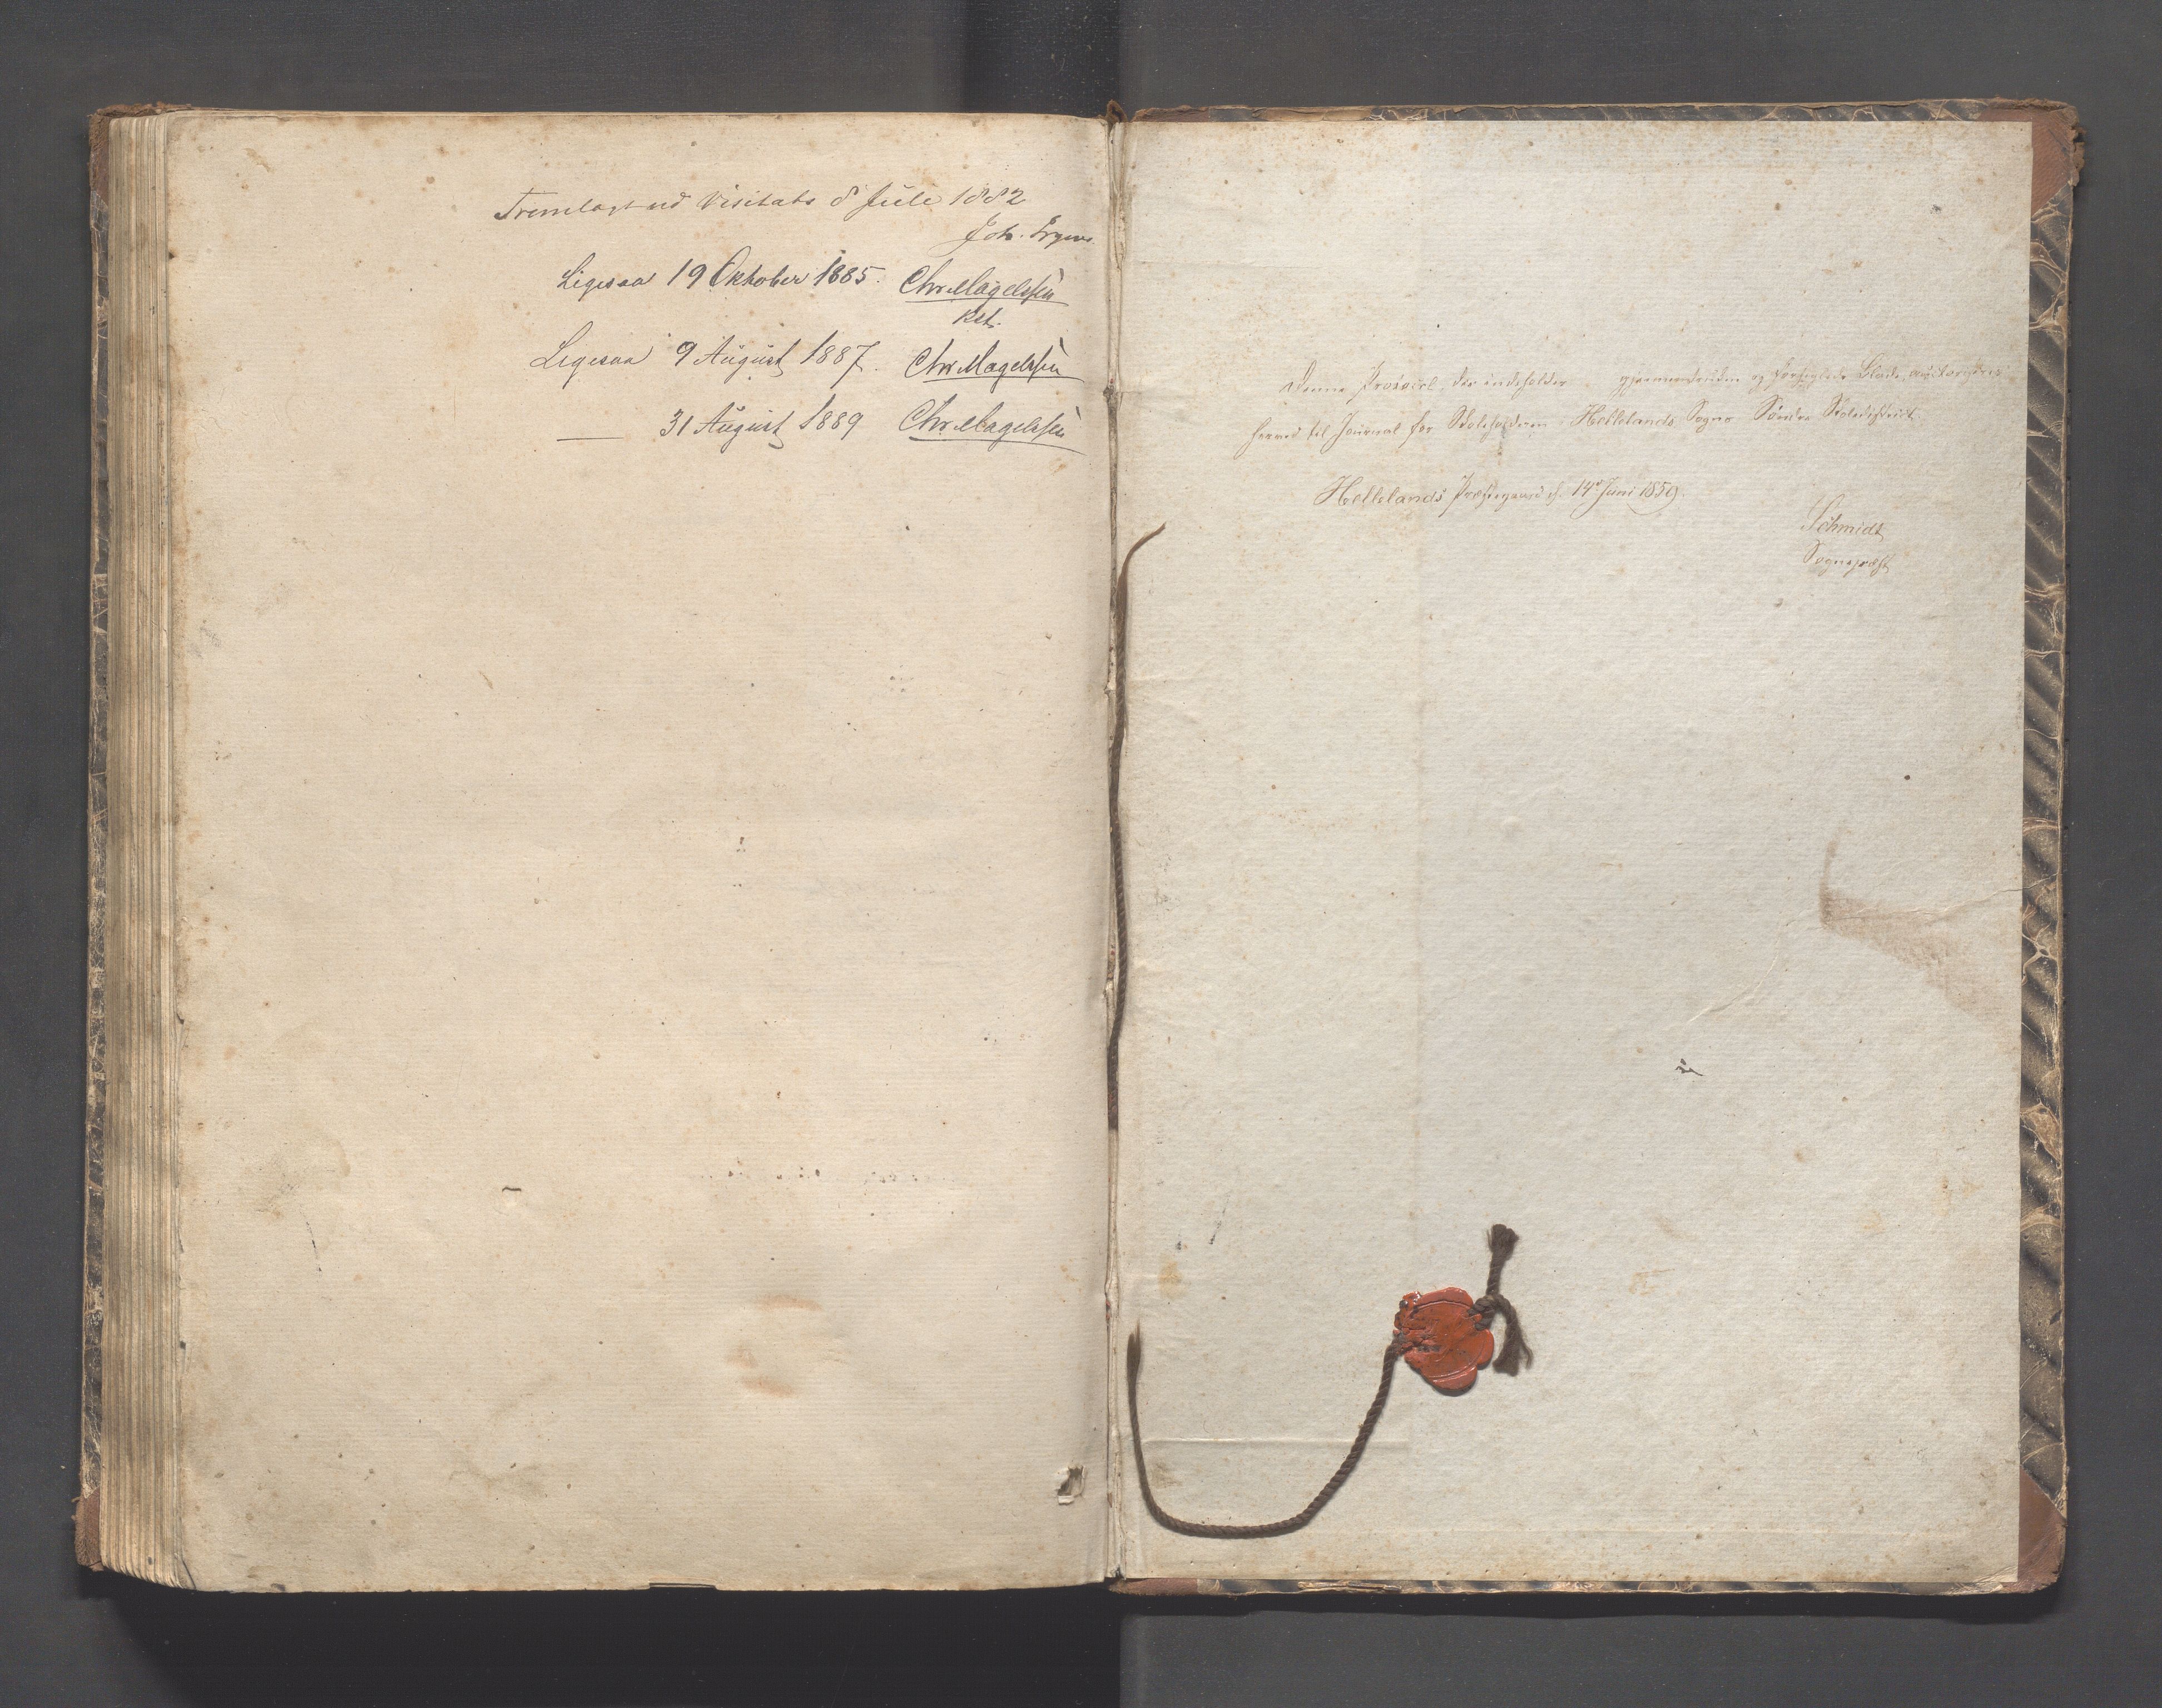 Fremlagt ved Visitats 8 Juli 1882
Joh.
Ligesaa 19 Oktober 1885. Chr Magelssen
Kst.
Ligesaa 9 August 1887. Chr Magelssen
— 31 August 1889 Chr Magelssen
Denne Protocol, der indeholder gjennemdragne og forseglede Blade, auctoriseres
herved til Journal for Skoleholderen i Hellelands Sogns Søndre Skoledistrict.
Hellelands Præstegaard d. 14de Juni 1859.
Schmidt
Sognepræst